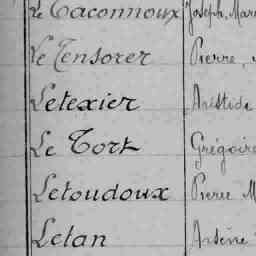 Le Taconnoux Joseph, Mar
Le Tensorer Pierre,
Letexier Aristide
Le Tort Grégoire
Letoudoux Pierre M
Letan Arsène